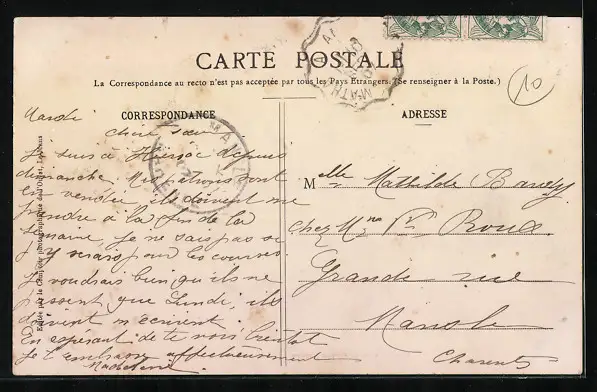 CARTE POSTALE
La Correspondance au recto n'est pas acceptée par tous les Pays Etrangers. (Se renseigner à la Poste.)
10
CORRESPONDANCE
ADRESSE
Mardi
chère sœur
Je suis à Hiersac depuis
dimanche. Mes patrons sont
en vendée ils doivent me
prendre à la fin de la
semaine, je ne sais pas si
j'y serais pour les courses.
je voudrais bien qu'ils ne
passent que Lundi, ils
doivent m'écrirent
En espérant de te voir bientôt
Je t'embrasse affectueusement
Madeleine
Melle Mathilde
chez Mme Vve Roux
Grande rue
Mansle
Charente